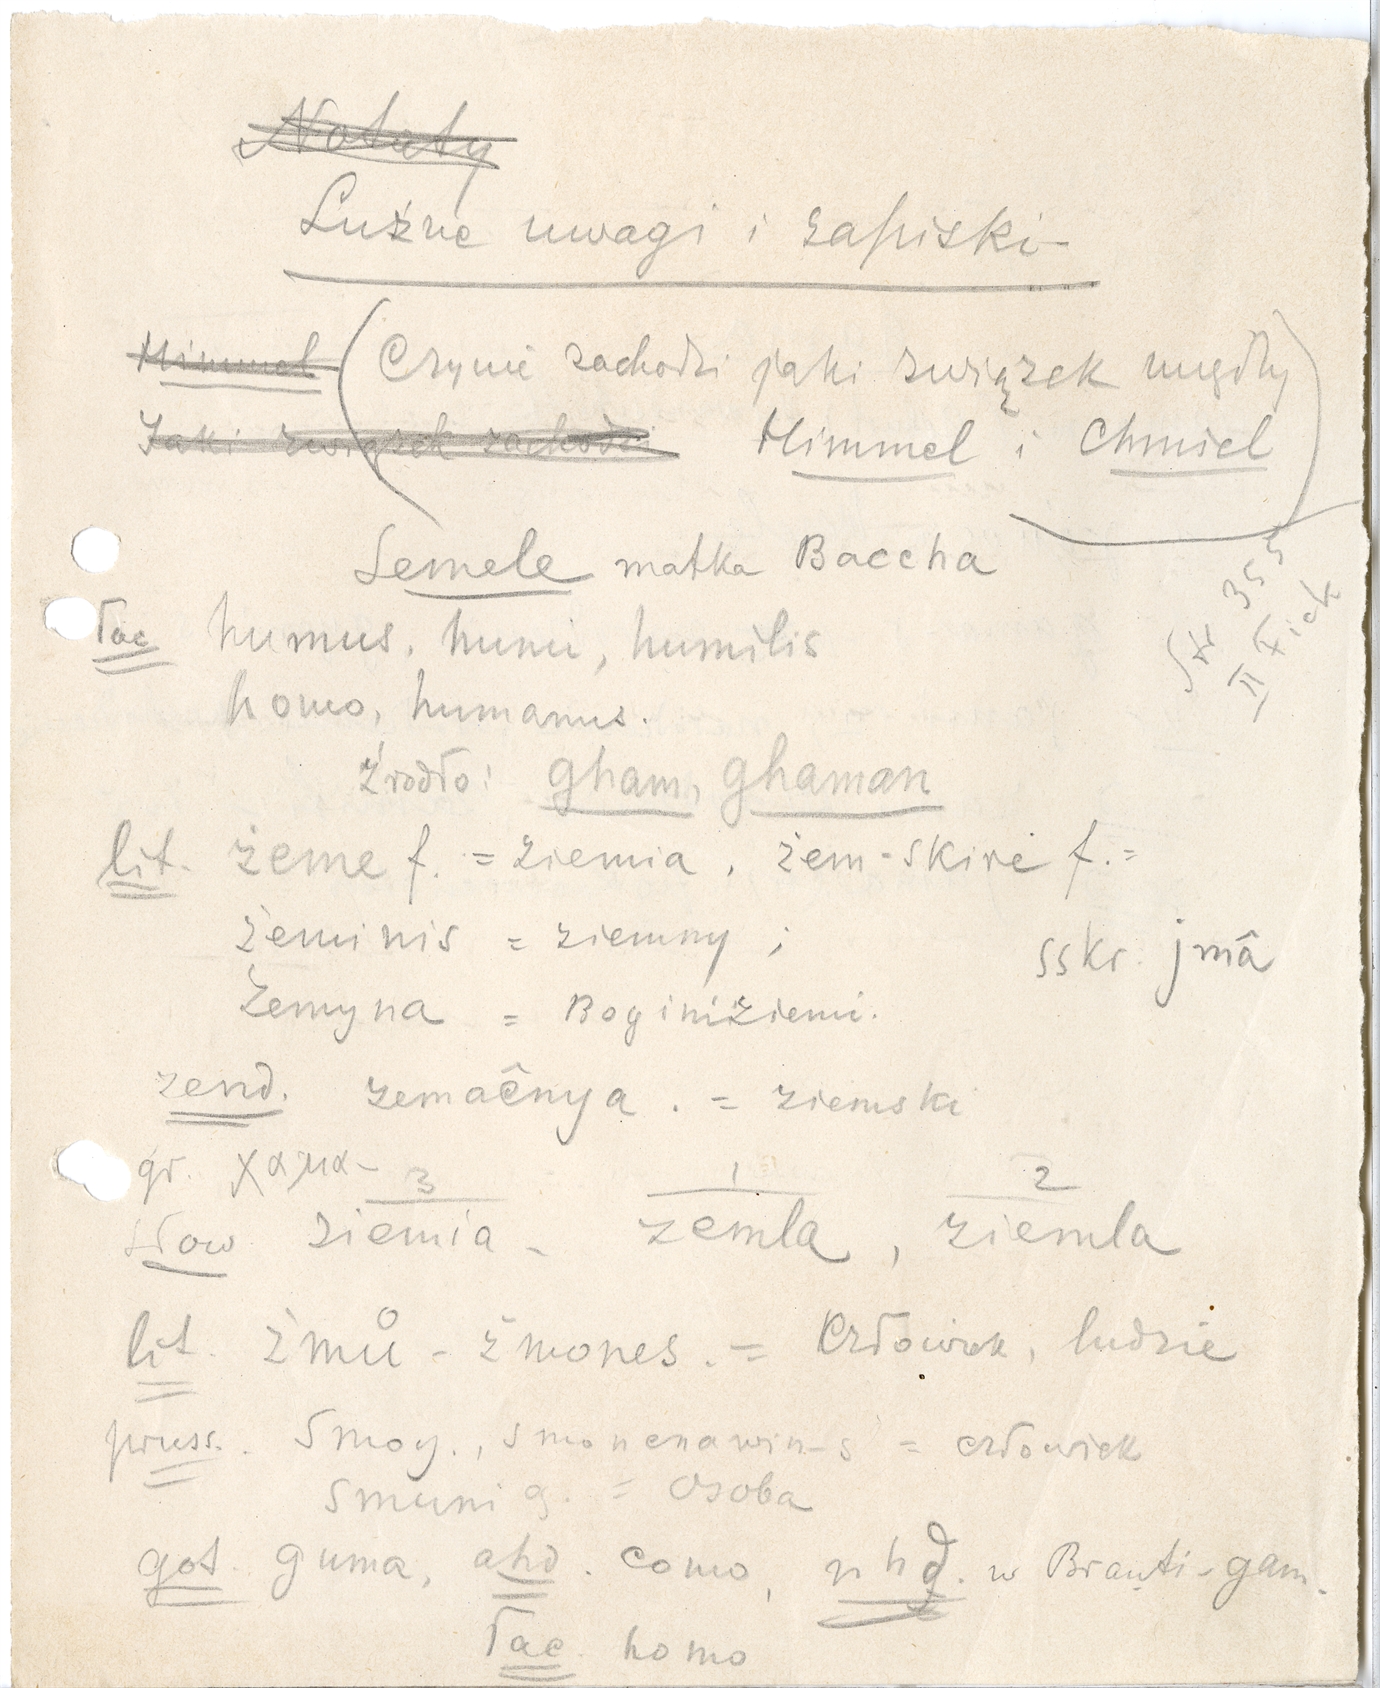 Notaty
Luźne uwagi i zapiski
Himmel (Czynie zachodzi jaki związek mgdły
Jaki związek zachodzi Himmel i Chmiel)
Semele matka Baccha
Str 355
II Fick
łac humus, humi, humilis
homo, humanus.
źródło: gham, ghaman
lit. żeme f. = ziemia, żem-skirė f. =
żeminis = ziemny;
sskr. jmâ
Żemyna = Bogini ziemi.
zend. zemaênya. = ziemski
gr. χαμα-
3 1 2
słow ziemia - zemla, ziemla
lit. żmů - żmones. = Człowiek, ludzie
pruss. Smoy., smonenawin-s = człowiek
smuni g. = osoba
got. guma, ahd. como, nhd. w Brauti-gam.
łac. homo